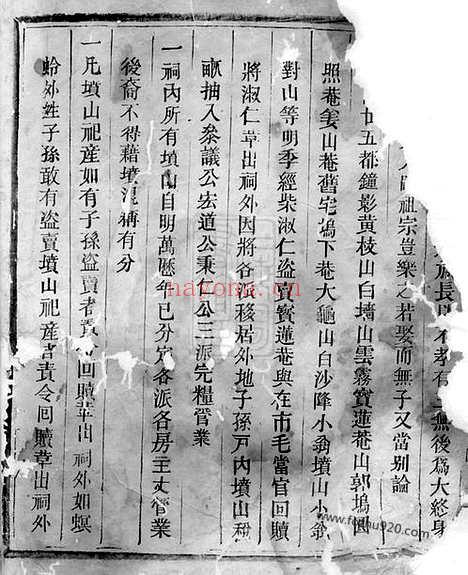 族長 不孝有 無後爲大終身
祖宗豈樂之若娶而無子又當別論
廿五都鐘影黄枝山白墻山雲霧寳蓮菴山郭塢園
照菴姜山菴舊宅塢下菴大龜山白沙降小翁墳山小翁
對山等明季經柴淑仁盜賣寳蓮菴與在市毛當官回贖
將淑仁革出祠外因將各派移居外地子孫戸内墳山稅
畝抽入叅議公宏道公秉仁公三派完糧管業
一祠内所有墳山自明萬歷年已分定各派各房主丈管業
後裔不得藉墳混稱有分
一凡墳山祀産如有子孫盜賣者責 回贖革出祠外如螟
蛉外姓子孫敢有盜賣墳山祀産者責令回贖革出祠外
hayona.cn
foxhu920.com